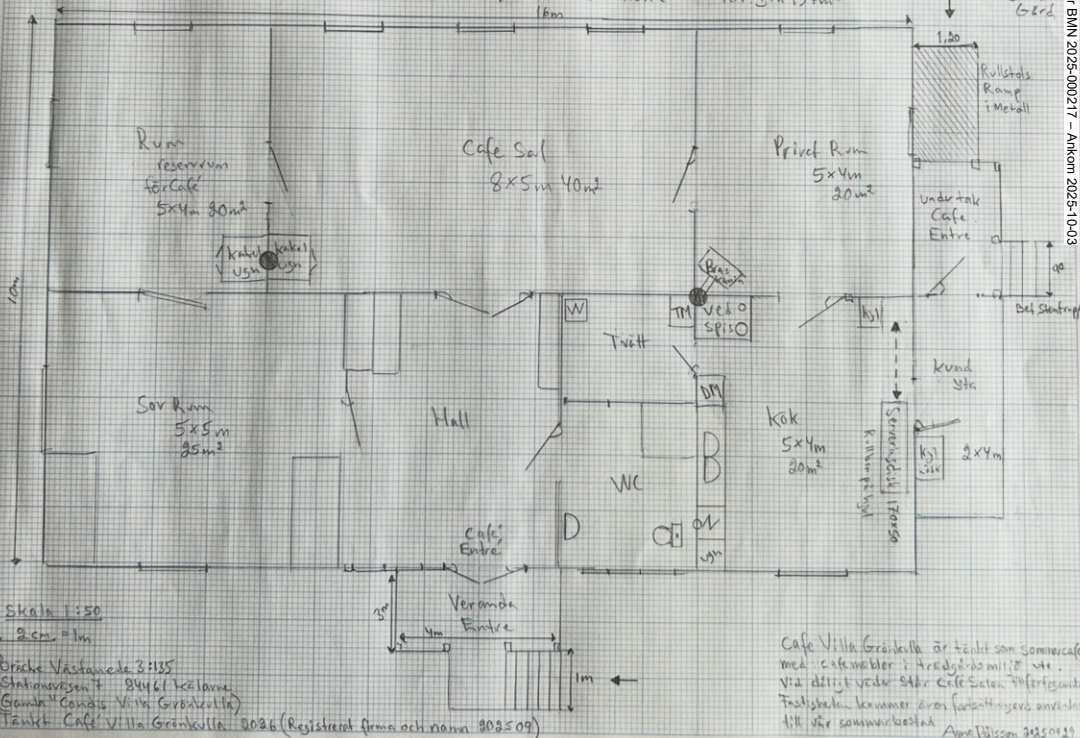 16m
Gård
r BMN 2025-000217 – Ankom 2025-10-03
1,20
Rullstols
Ramp
i Metall
Rum
reservrum
för Café
5x4m 20m²
Cafe Sal
8x5m 40m²
Privat Rum
5x4m
20m²
under tak
Cafe
Entre
Kakel
ugn
Kakel
ugn
10m
W
TM
ved
spis
Kyl
Tvätt
DM
Kund
yta
Sov Rum
5x5m
25m²
Hall
Kök
5x4m
20m²
Serveringsdisk 170x50
2x4m
WC
Café
Entré
ugn
3m
Veranda
Entre
4m
1m
Skala 1:50
2 cm = 1m
Bräcke Västanede 3:135
Stationsvägen 7 84461 Kälarne
Gamla "Condis Villa Grönkulla)
Tänkt Café Villa Grönkulla 2026 (Registrerat firma och namn 202509)
Cafe Villa Grönkulla är tänkt som sommarcafe
med cafemöbler i trädgårdsmiljö ute.
Vid dåligt väder står Café Salen till förfogande
Fastigheten kommer även fortsättningsvis användas
till vår sommarbostad